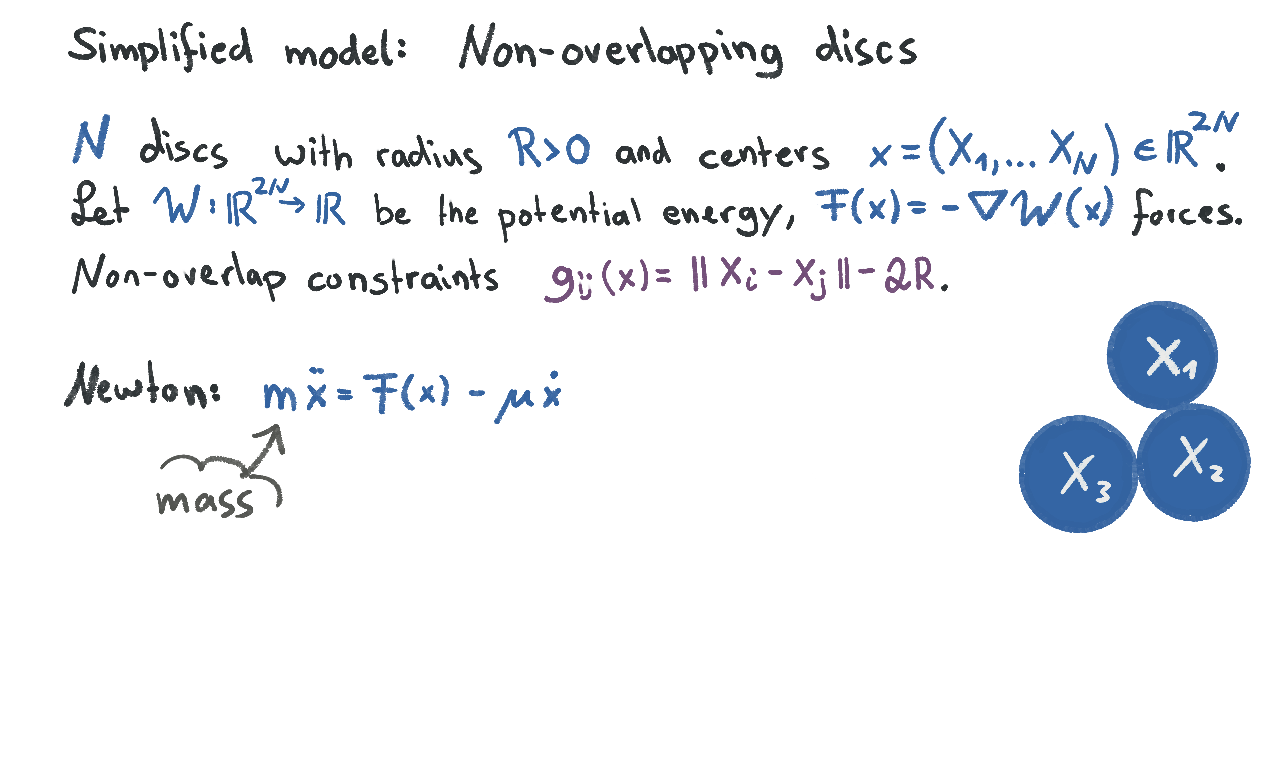 Simplified model: Non-overlapping discs
N discs with radius R>0 and centers x=(X₁,... X_N) ∈ ℝ²ᴺ.
Let W: ℝ²ᴺ → ℝ be the potential energy, F(x) = - ∇W(x) forces.
Non-overlap constraints g_ij(x) = ‖X_i - X_j‖ - 2R.
X₁
Newton: mẍ = F(x) - μẋ
X₃ X₂
mass